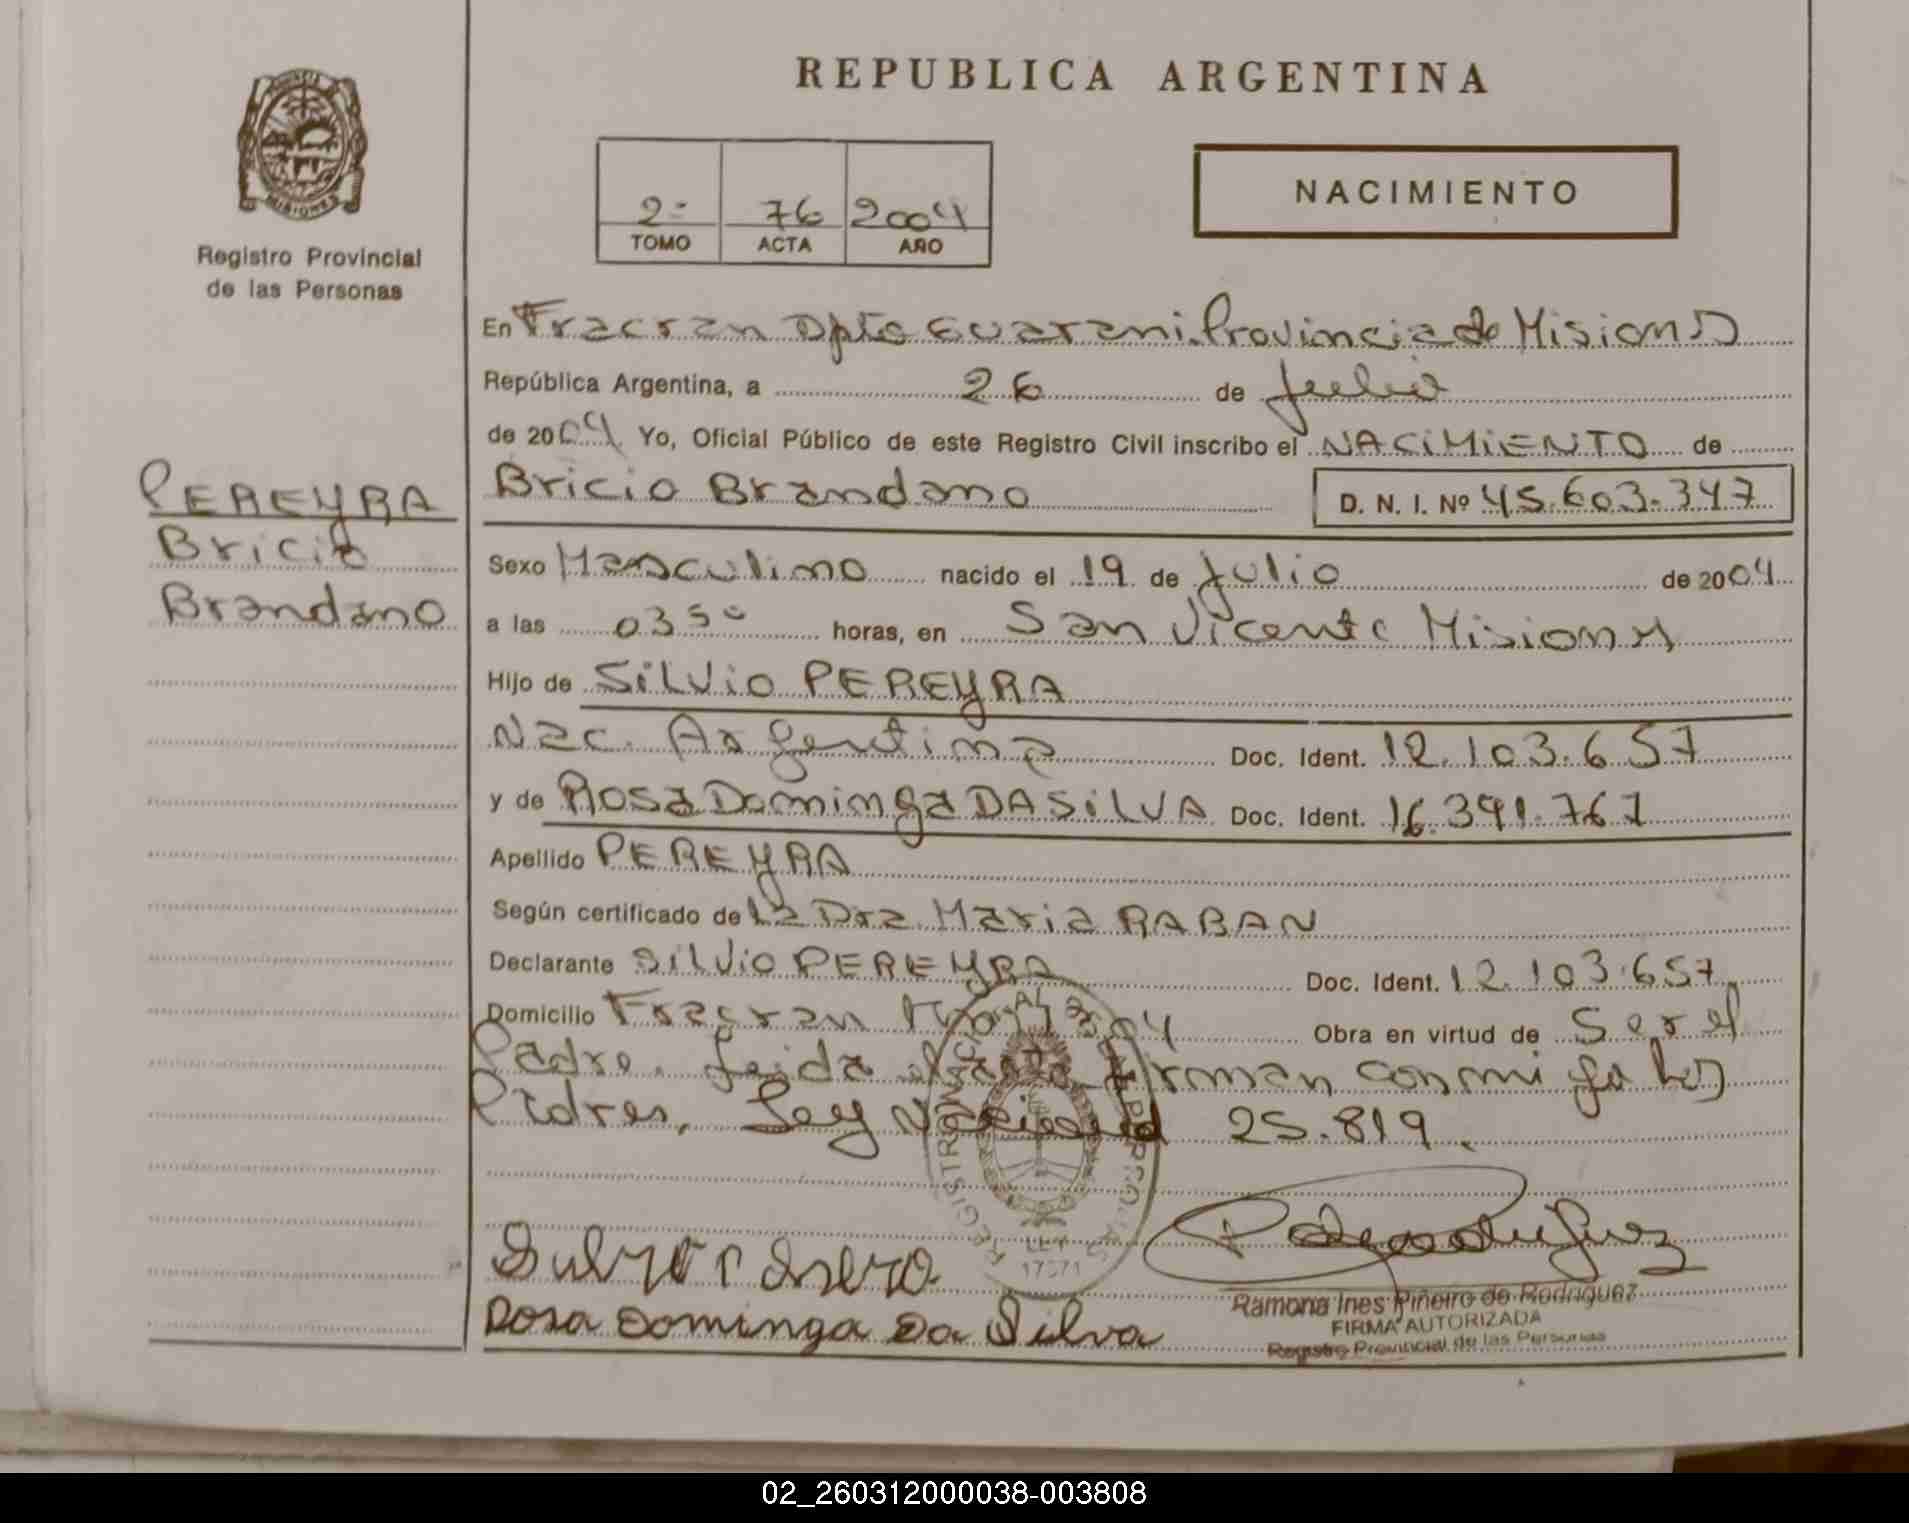 REPUBLICA ARGENTINA
MISIONES
Registro Provincial
de las Personas
2º 76 2004
TOMO ACTA AÑO
NACIMIENTO
En Fracran Dpto Guarani. Provincia de Misiones
República Argentina, a 26 de Julio
de 2004 Yo, Oficial Público de este Registro Civil inscribo el NACIMIENTO de
Bricio Brandano D. N. I. Nº 45.603.347
PEREYRA
Bricio
Brandano
Sexo Masculino nacido el 19 de Julio de 2004
a las 03 50 horas, en San Vicente Misiones
Hijo de SILVIO PEREYRA
Nac. Argentina Doc. Ident. 12.103.657
y de Rosa Dominga DA SILVA Doc. Ident. 16.391.767
Apellido PEREYRA
Según certificado de La Dra. Maria RABAN
Declarante SILVIO PEREYRA Doc. Ident. 12.103.657
Domicilio Fracran Obra en virtud de Ser el
Padre. Leida el acta firman conmigo los
Padres. Ley Nacional 25.819.
LEY
17671
Rosa Dominga Da Silva
Ramona Ines Piñeiro de Rodriguez
FIRMA AUTORIZADA
Registro Provincial de las Personas
02_260312000038-003808